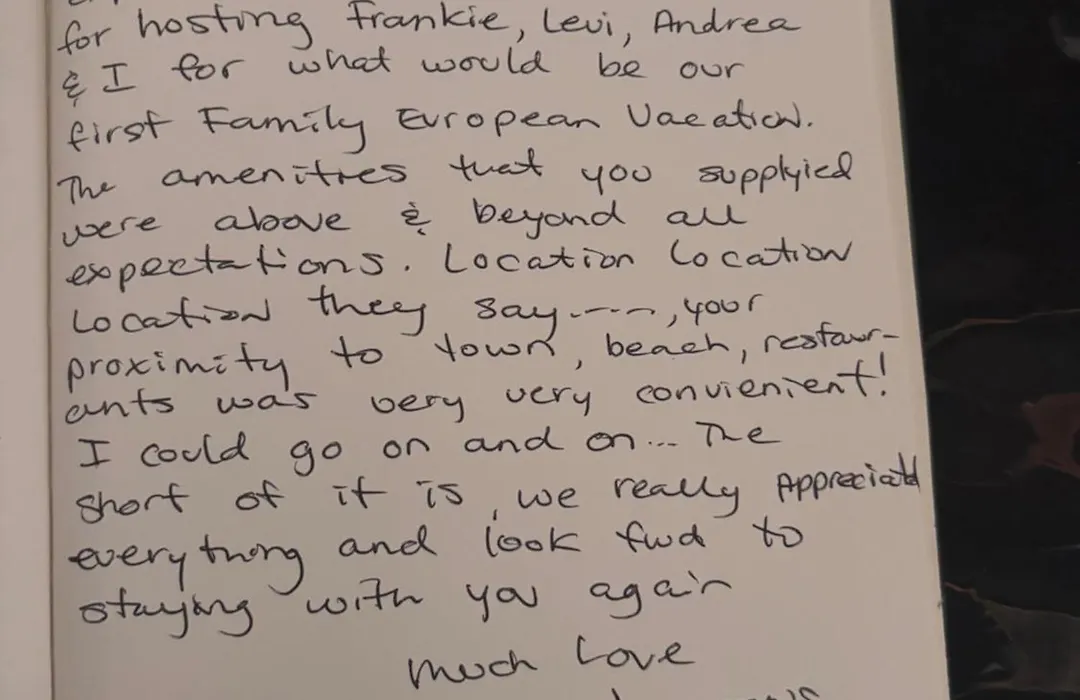 for hosting Frankie, Levi, Andrea
& I for what would be our
first Family European Vacation.
The amenities that you supplyied
were above & beyond all
expectations. Location Location
Location they say ----, your
proximity to town, beach, restaur-
ants was very very convienient!
I could go on and on... The
short of it is, we really Appreciated
everything and look fwd to
staying with you again
Much Love